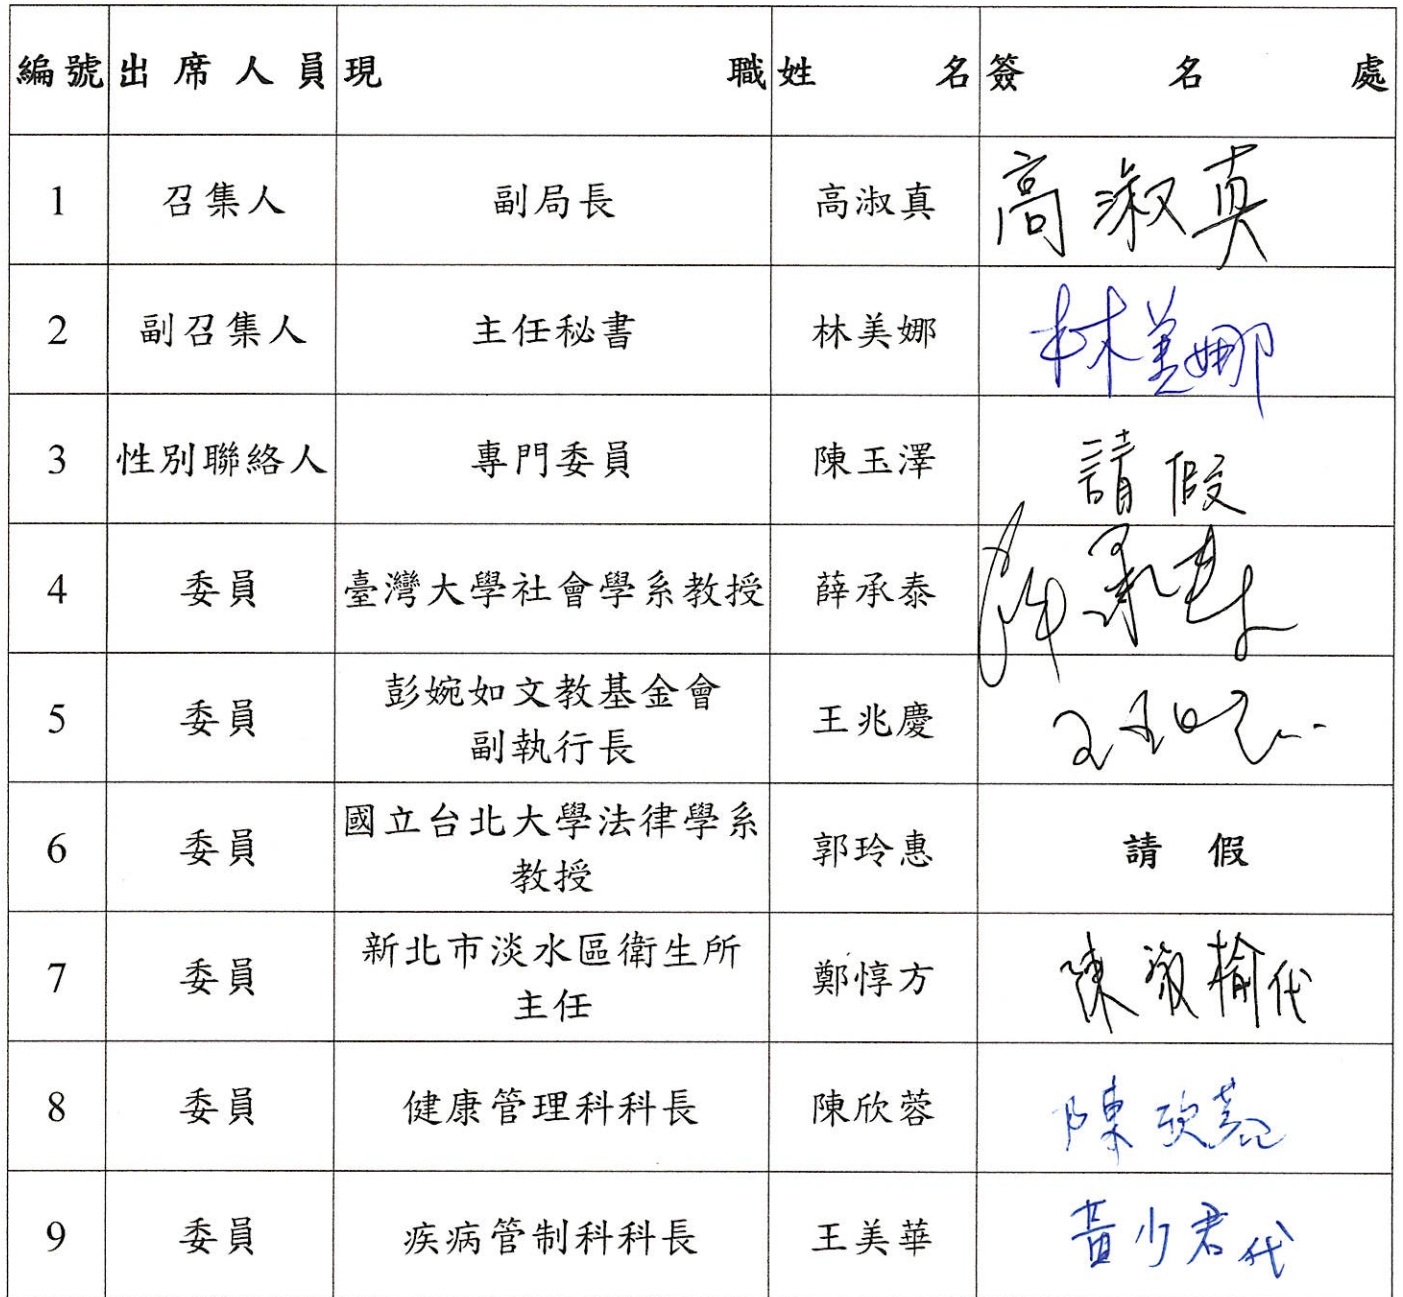 編號 出席人員 現職 姓名 簽名處
1 召集人 副局長 高淑真 高淑真
2 副召集人 主任秘書 林美娜 林美娜
3 性別聯絡人 專門委員 陳玉澤 請假
4 委員 臺灣大學社會學系教授 薛承泰 薛承泰
5 委員 彭婉如文教基金會
副執行長 王兆慶
6 委員 國立台北大學法律學系
教授 郭玲惠 請假
7 委員 新北市淡水區衛生所
主任 鄭惇方 陳淑榆代
8 委員 健康管理科科長 陳欣蓉 陳欣蓉
9 委員 疾病管制科科長 王美華 黃少君代